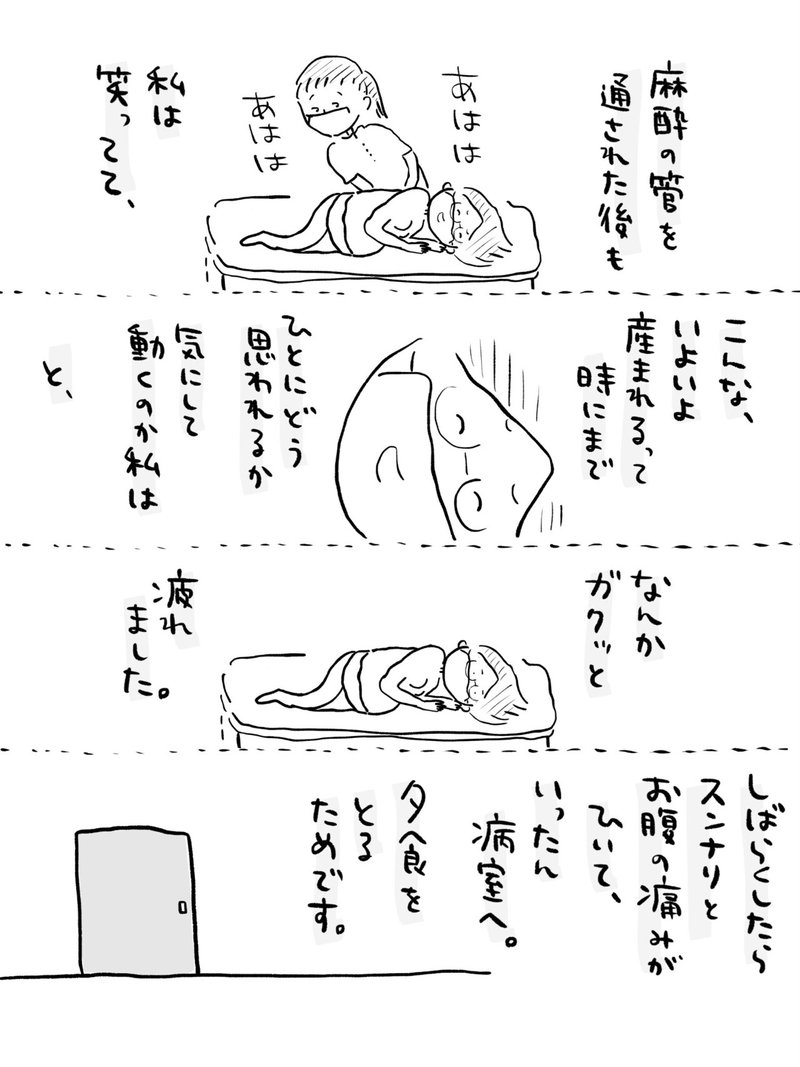 麻酔の管を
通された後も
あはは
あはは
私は
笑ってて、
こんな、
いよいよ
産まれるって
時にまで
ひとにどう
思われるか
気にして
動くのか私は
と、
なんか
ガクッと
疲れ
ました。
しばらくしたら
スンナリと
お腹の痛みが
ひいて、
いったん
病室へ。
夕食を
とる
ためです。